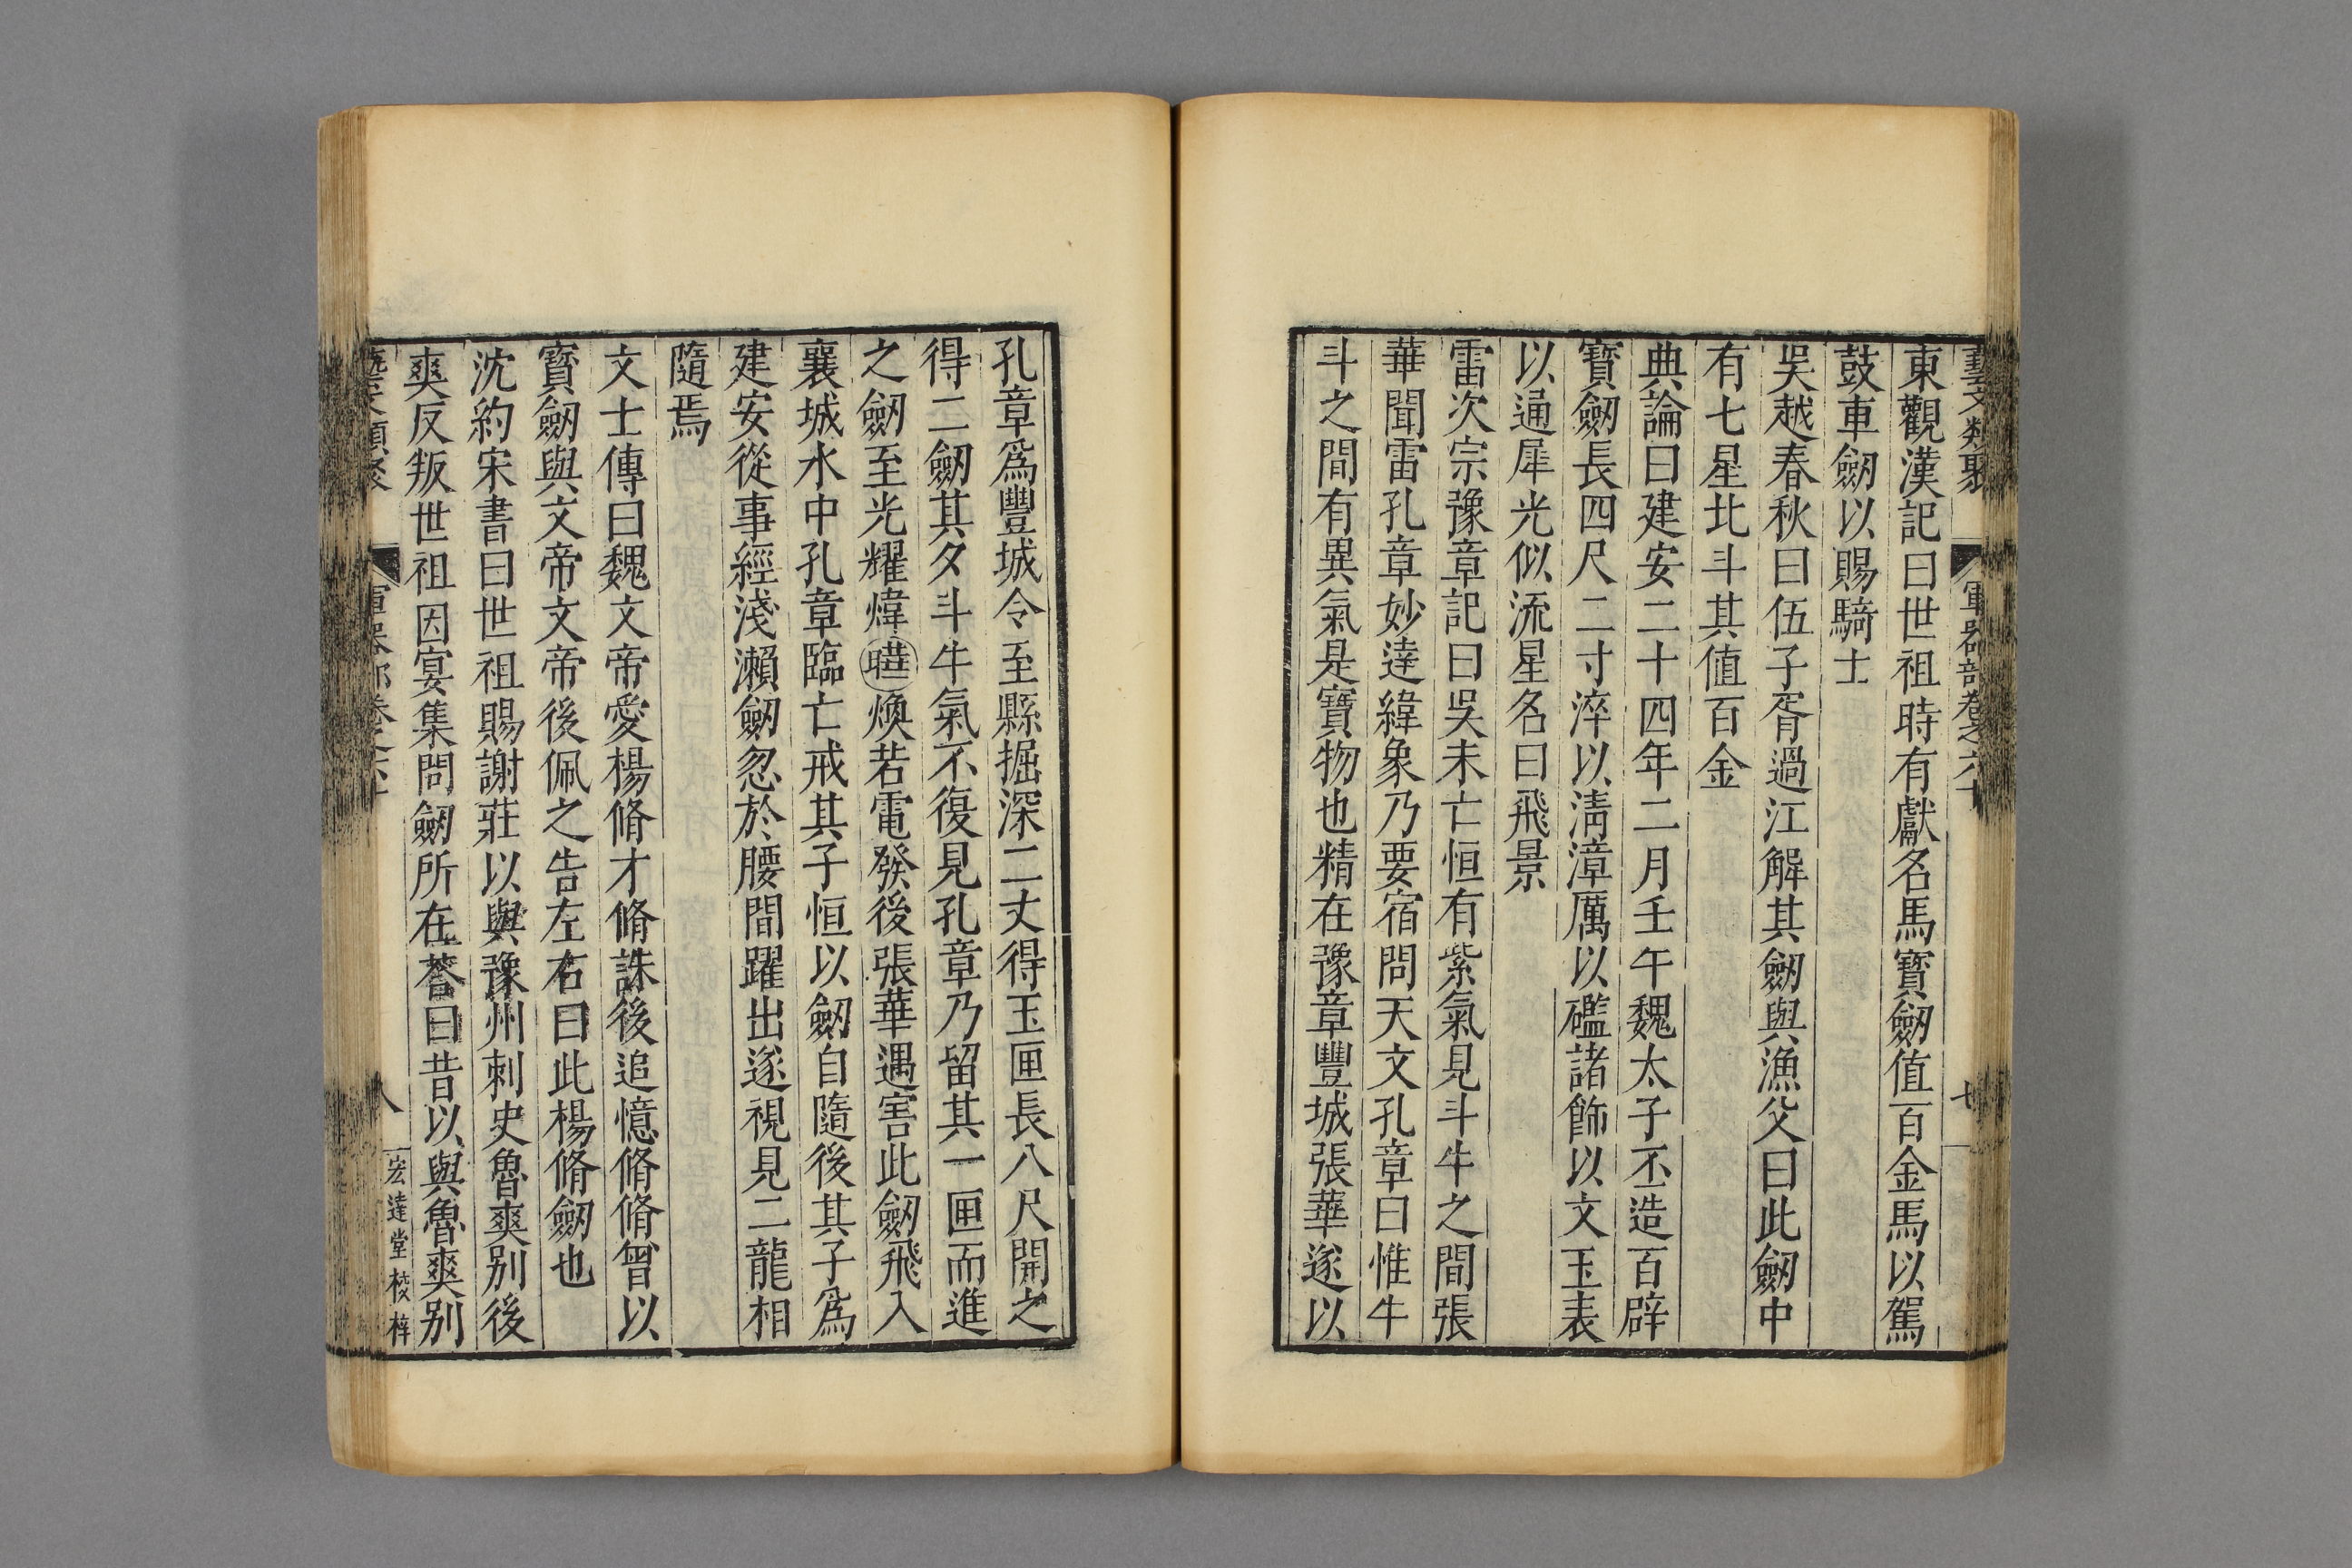 藝文類聚 軍器部卷之六十 七
東觀漢記曰世祖時有獻名馬寶劒值百金馬以駕
鼓車劒以賜騎士
吳越春秋曰伍子胥過江解其劒與漁父曰此劒中
有七星北斗其值百金
典論曰建安二十四年二月壬午魏太子丕造百辟
寶劒長四尺二寸淬以淸漳厲以礛諸飾以文玉表
以通犀光似流星名曰飛景
雷次宗豫章記曰吳未亡恒有紫氣見斗牛之間張
華聞雷孔章妙達緯象乃要宿問天文孔章曰惟牛
斗之間有異氣是寶物也精在豫章豐城張華遂以
孔章爲豐城令至縣掘深二丈得玉匣長八尺開之
得二劒其夕斗牛氣不復見孔章乃留其一匣而進
之劒至光耀煒曄煥若電發後張華遇害此劒飛入
襄城水中孔章臨亡戒其子恒以劒自隨後其子爲
建安從事經淺瀨劒忽於腰間躍出遂視見二龍相
隨焉
文士傳曰魏文帝愛楊脩才脩誅後追憶脩脩曾以
寶劒與文帝文帝後佩之告左右曰此楊脩劒也
沈約宋書曰世祖賜謝莊以與豫州刺史魯爽別後
爽反叛世祖因宴集問劒所在荅曰昔以與魯爽別
藝文類聚 軍器部卷之六十 八 宏達堂校梓